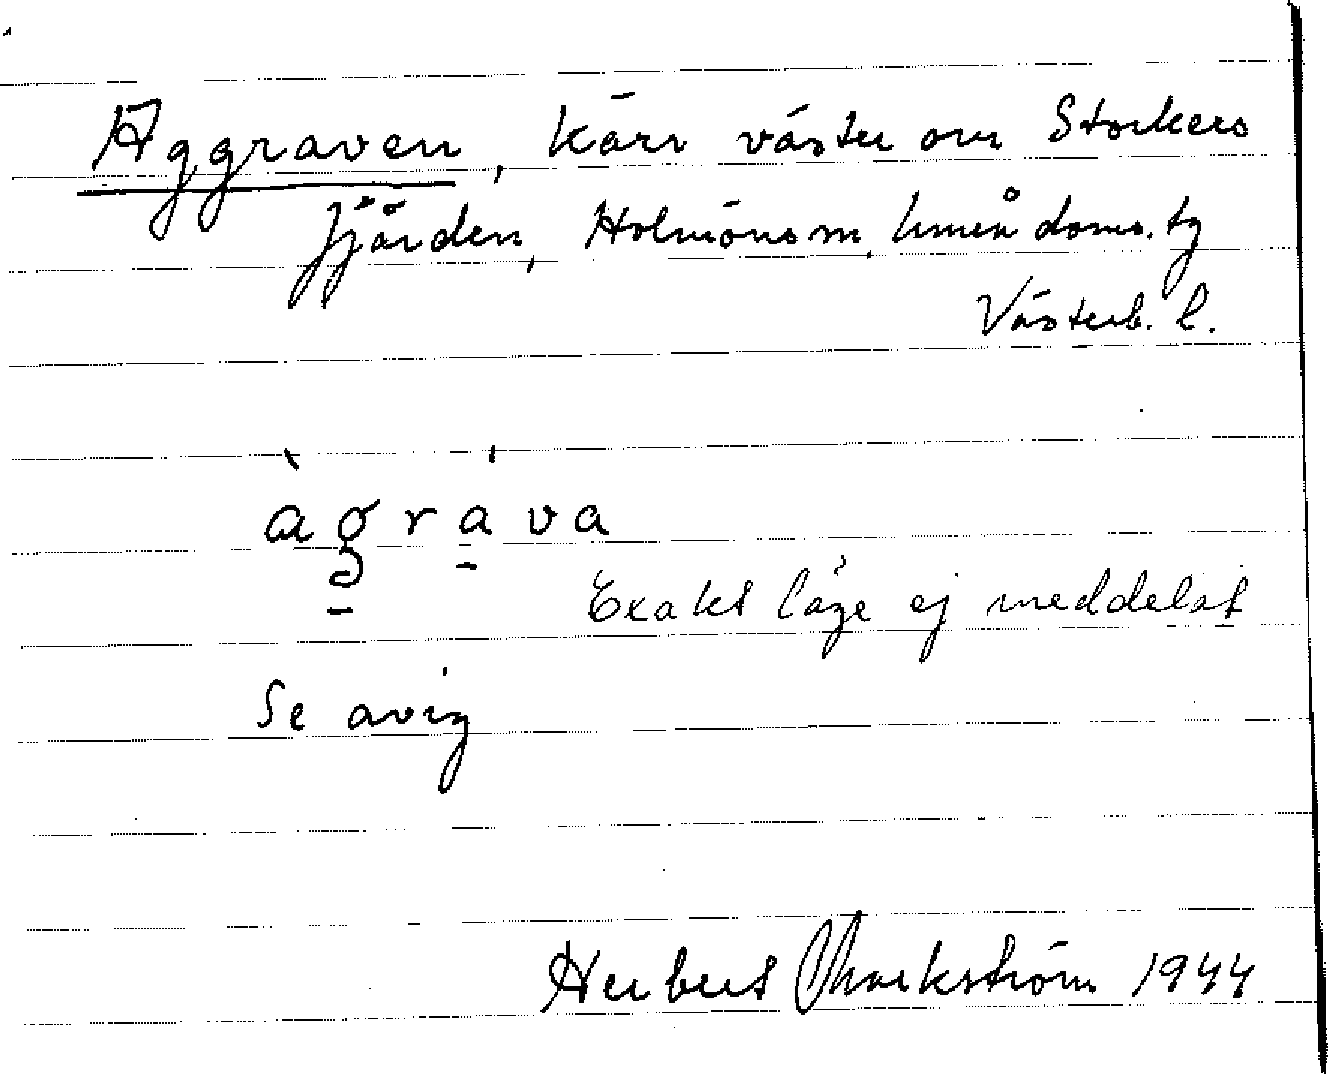 Aggraven, kärr väster om Storkers
fjärden, Holmöns sn, Umeå doms. tg
Västerb. l.
àgráva
Exakt läge ej meddelat
Se avig
Herbert Markström 1944